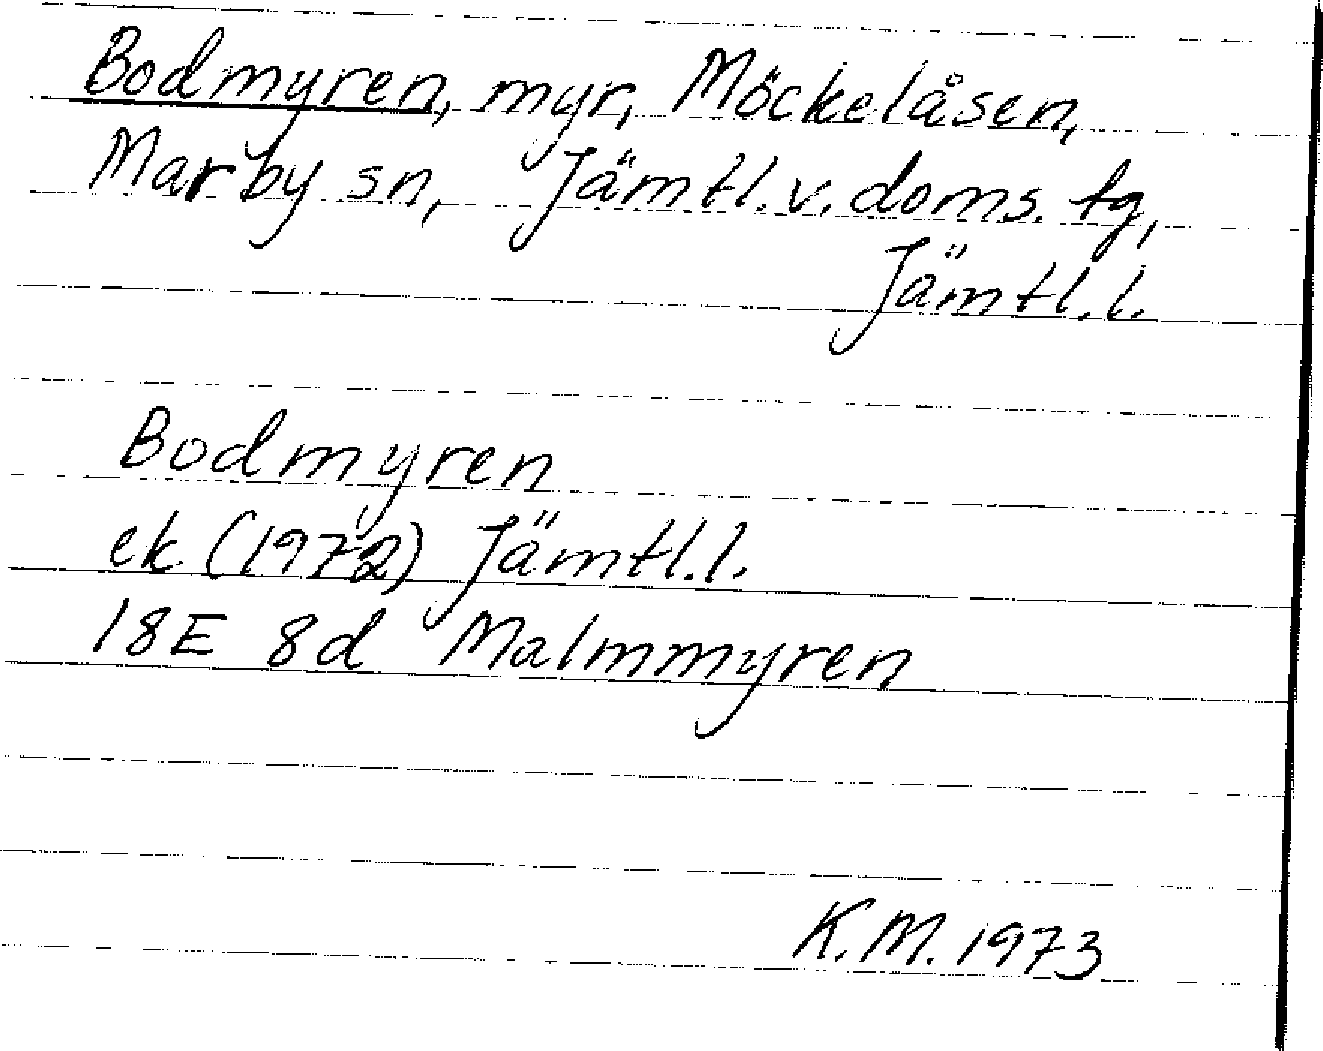 Bodmyren, myr, Möckelåsen,
Marby sn, Jämtl. v. doms. tg,
Jämtl. l.
Bodmyren
ek (1972) Jämtl. l.
18E 8d Malmmyren
K.M. 1973